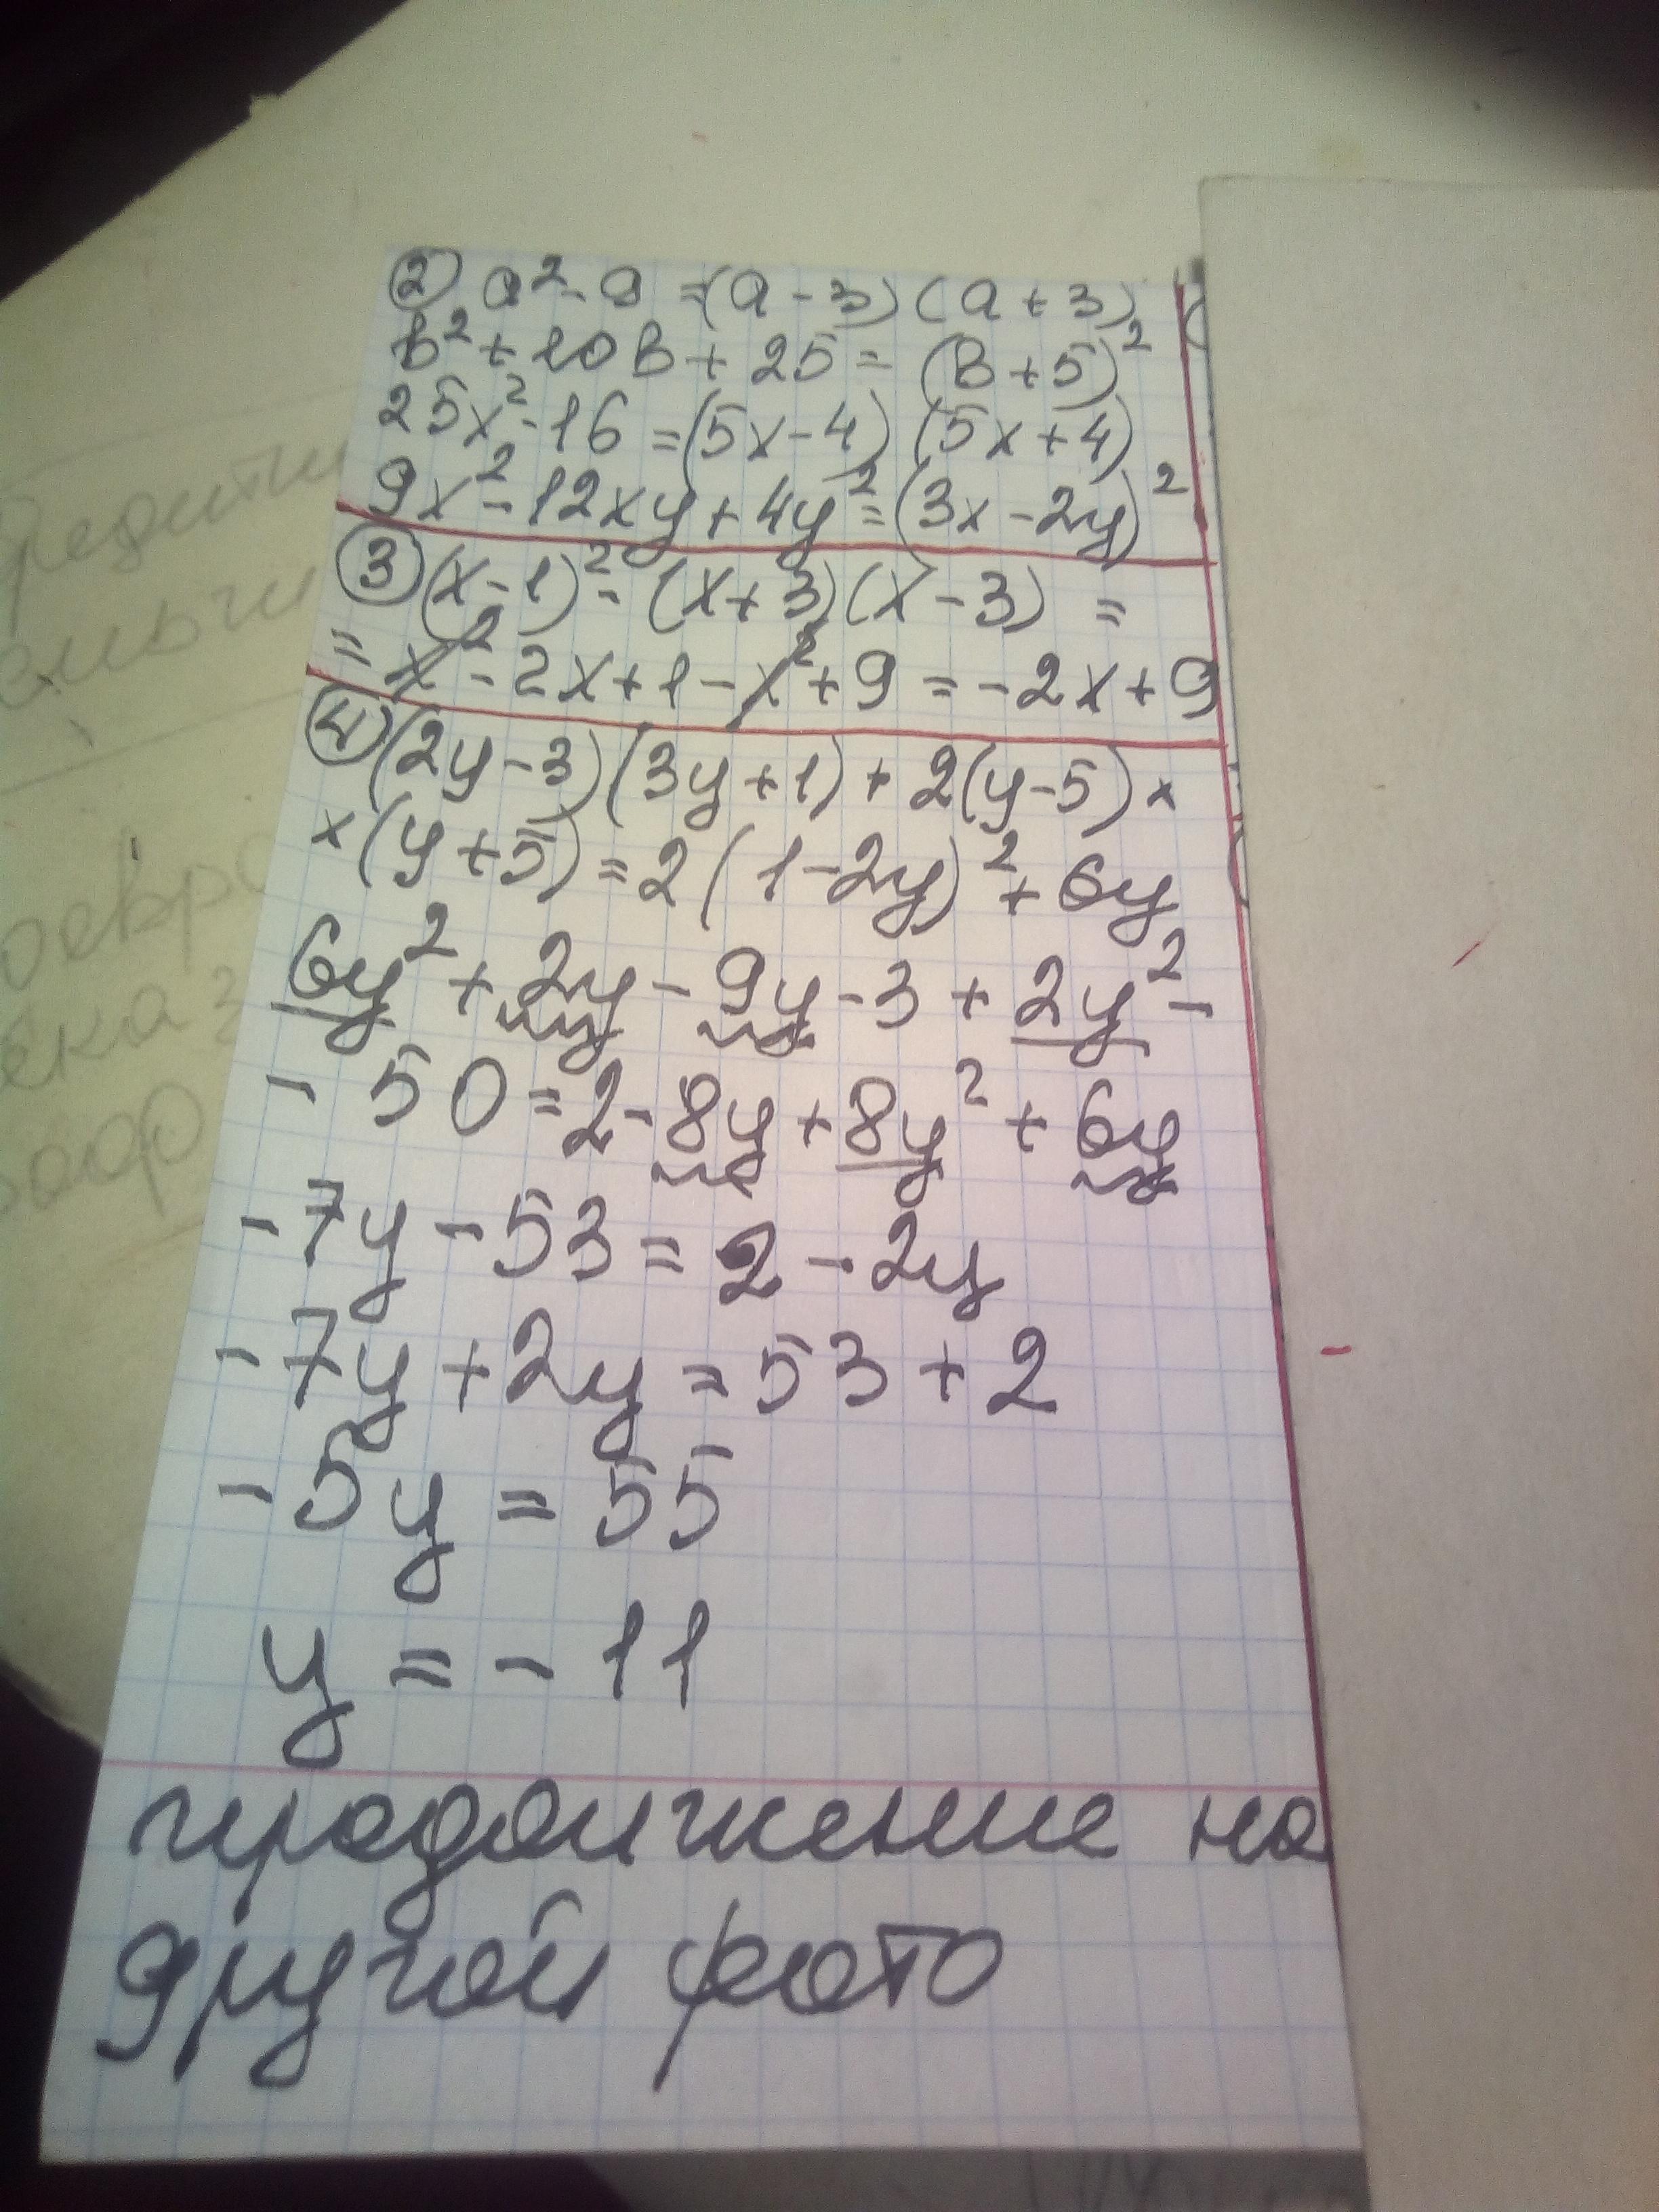 ② a² - 9 = (a - 3) (a + 3)
в² + 10в + 25 = (в + 5)²
25x² - 16 = (5x - 4) (5x + 4)
9x² - 12xy + 4y² = (3x - 2y)²
③ (x - 1)² - (x + 3) (x - 3) =
= x² - 2x + 1 - x² + 9 = -2x + 9
④ (2y - 3) (3y + 1) + 2(y - 5) ×
× (y + 5) = 2 (1 - 2y)² + 6y
6y² + 2y - 9y - 3 + 2y² -
- 50 = 2 - 8y + 8y² + 6y
-7y - 53 = 2 - 2y
-7y + 2y = 53 + 2
-5y = 55
y = -11
продолжение на
другой фото